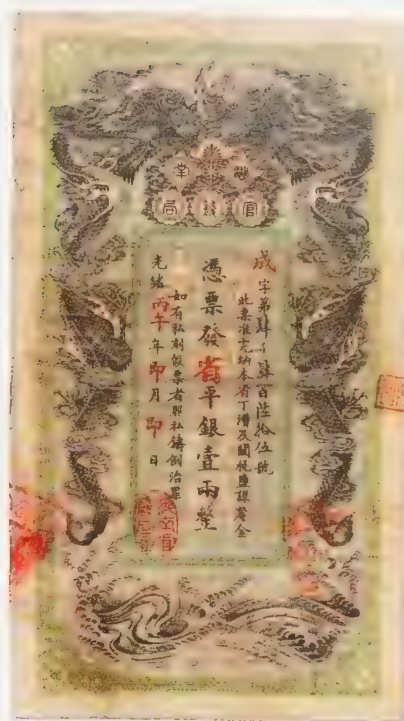 湖南
官錢局
成字第肆千肆百陸拾伍號
此票准完納本省丁漕及關稅鹽課釐金
憑票發省平銀壹兩整
如有私刻假票者照私鑄例治罪
光緒丙午年即月即日